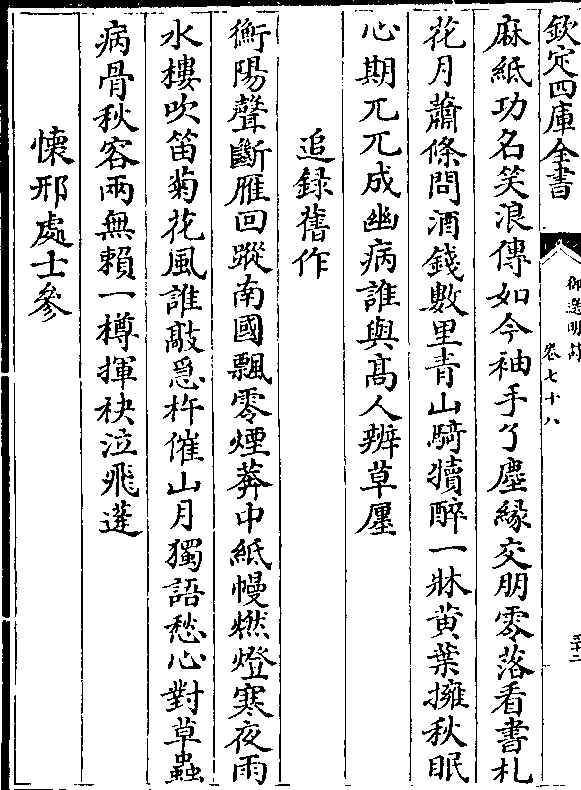 欽定四庫全書
御選明詩
卷七十八
麻紙功名笑浪傳如今袖手了塵緣交朋零落看書札
花月蕭條問酒錢數里青山騎犢醉一牀黃葉擁秋眠
心期兀兀成幽病誰與高人辨草廛
追錄舊作
衡陽聲斷雁回蹤南國飄零煙莽中紙幔燃燈寒夜雨
水樓吹笛菊花風誰敲急杵催山月獨語愁心對草蟲
病骨秋容兩無賴一樽揮袂泣飛蓬
懷邢處士參